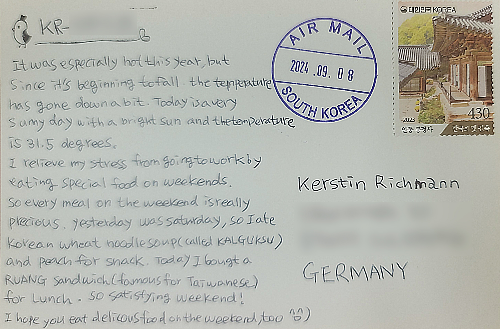 KR-
It was especially hot this year, but
Since it's beginning to fall. the temperature
has gone down a bit. Today is a very
Sunny day with a bright sun and the temperature
is 31.5 degrees.
I relieve my stress from going to work by
eating special food on weekends.
So every meal on the weekend is really
precious. yesterday was saturday, so I ate
Korean wheat noodle soup (called KALGUKSU)
and peach for snack. Today I bougt a
RUANG sandwich (famous for Taiwanese)
for Lunch. so satisfying weekend!
I hope you eat delicous food on the weekend, too ^^)
AIR MAIL
2024.09.08
SOUTH KOREA
대한민국 KOREA
430
Kerstin Richmann
GERMANY